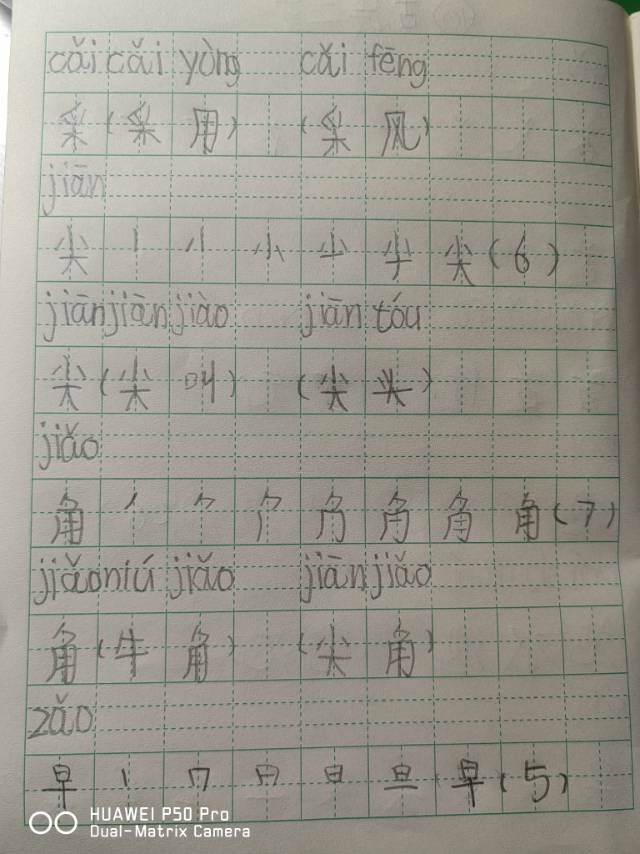 cǎi cǎi yòng cǎi fēng
采(采用) (采风)
jiān
尖 丨 小 尖(6)
jiān jiān jiào jiān tóu
尖(尖叫) (尖头)
jiǎo
角 丿 ⺈ 角(7)
jiǎo niú jiǎo jiān jiǎo
角(牛角) (尖角)
zǎo
早 丨 冂 日 日 旦 早(5)
HUAWEI P50 Pro
Dual-Matrix Camera